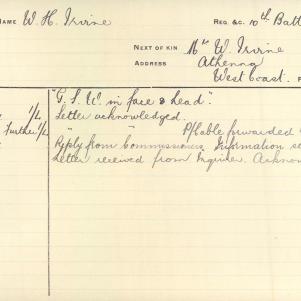 NAME W. H. Irvine REG. &C. 10th Batt
NEXT OF KIN Mr W. Irvine
ADDRESS Athenna
West Coast.
"G. S. W. in face & head".
1/L Letter acknowledged.
Further 1/L P/Cable forwarded
"Reply from" Commissioners Information
Letter received from Inquirer.